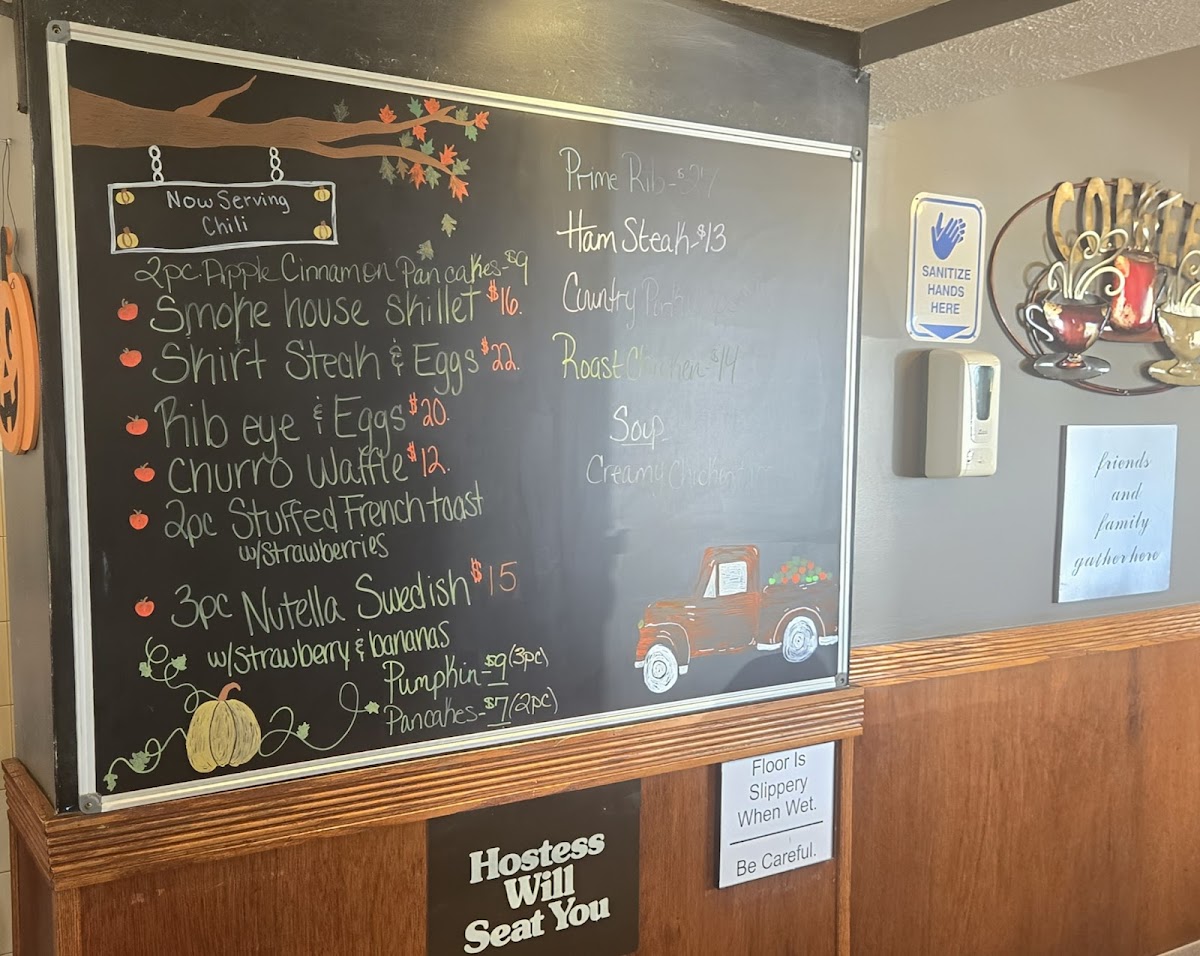 Now Serving
Chili
2pc Apple Cinnamon Pancakes-$9
Smoke house skillet $16.
Skirt Steak & Eggs $22.
Rib eye & Eggs $20.
Churro Waffle $12.
2pc Stuffed French toast
w/strawberries
3pc Nutella Swedish $15
w/strawberry & bananas
Pumpkin-$9(3pc)
Pancakes-$7(2pc)
Prime Rib-
Ham Steak-$13
Country
Roast Chicken-$14
Soup
Creamy Chicken
SANITIZE
HANDS
HERE
COFFEE
friends
and
family
gather here
Floor Is
Slippery
When Wet.
Be Careful.
Hostess
Will
Seat You